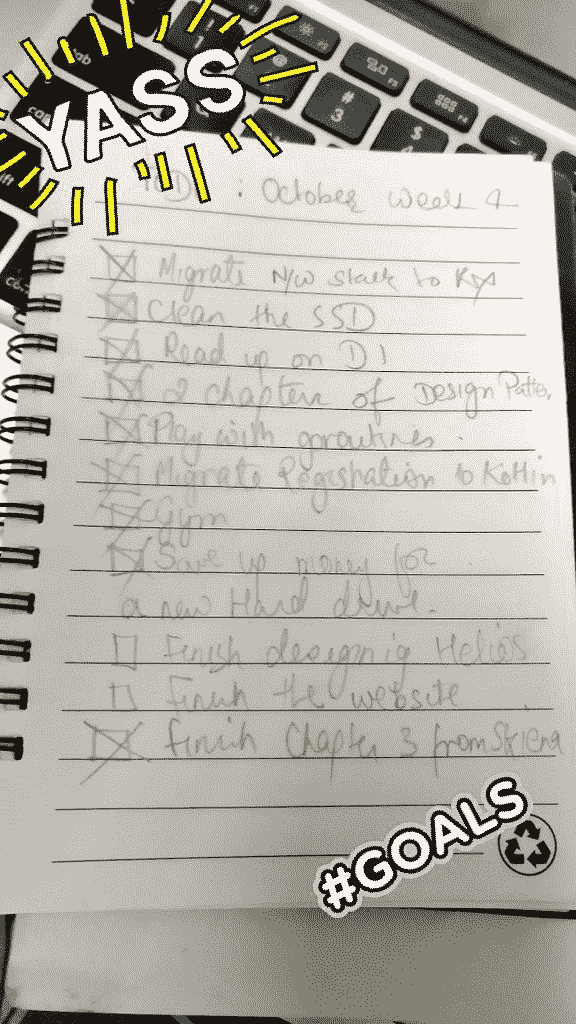 YASS
: October Week 4
Migrate N/w stack to Rx
Clean the SSD
Read up on DI
2 chapters of Design
Play with goroutines.
Migrate Registration to Kotlin
Gym
Save up money for
a new Hard drive.
Finish designing Helios
Finish the website
Finish Chapter 3 from Skiena
#GOALS